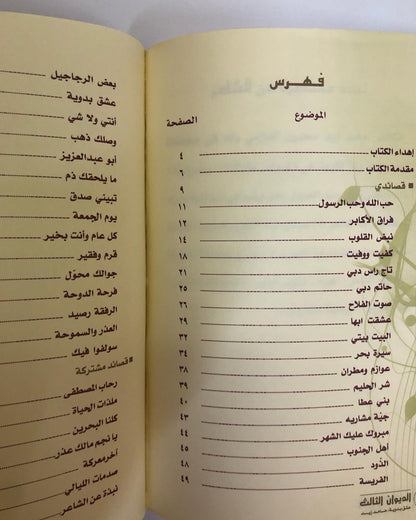 فهرس
الموضوع الصفحة
إهداء الكتاب ٤
مقدمة الكتاب ٦
قصائدي ٩
حب الله وحب الرسول ١١
فراق الأكابر ١٢
نبض القلوب ١٤
كفيت ووفيت ١٨
تاج راس دبي ٢١
حاتم دبي ٢٥
صوت الفلاح ٢٦
عشقت ابها ٢٩
البيت بيتي ٣٢
سيرة بحر ٣٤
عوازم ومطران ٣٨
شر الحليم ٣٩
بني عطا ٤٠
جيّة مشاريه ٤٣
مبروك عليك الشهر ٤٤
أهل الجنوب ٤٥
الذود ٤٨
الفريسة ٤٩
الديوان الثالث
بعض الرجاجيل
عشق بدوية
أنتي ولا شي
وصلك ذهب
أبو عبدالعزيز
ما يلحقك ذم
تبيني صدق
يوم الجمعة
كل عام وأنت بخير
قرم وفقير
جوالك محوّل
فرحة الدوحة
الرفقة رصيد
العذر والسموحة
سولفوا فيك
قصائد مشتركة
رحاب المصطفى
ملذات الحياة
كلنا البحرين
يا نجم مالك عذر
آخر معركة
صدمات الليالي
نبذة عن الشاعر